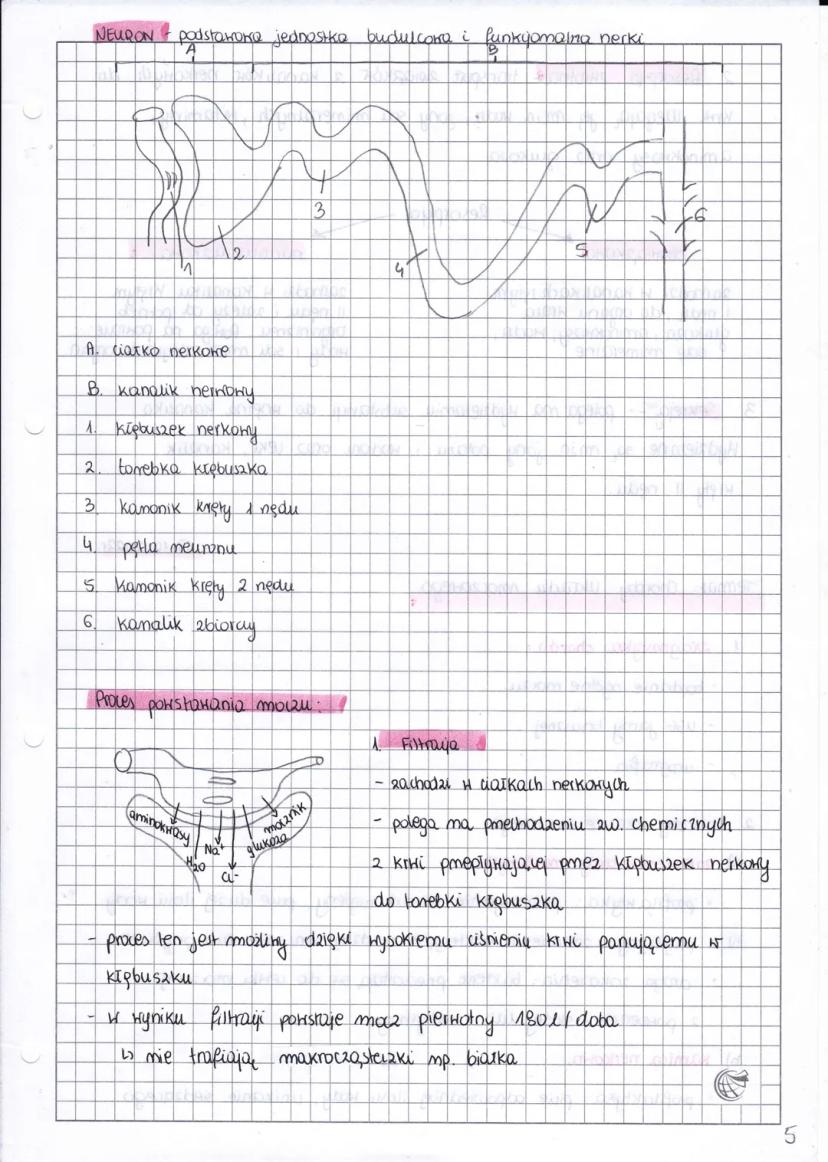 NEURON - podstawowa jednostka budulcowa i funkcjonalna nerki
A
B
1
2
3
4
5
6
A. ciałko nerkowe
B. kanalik nerkowy
1. kłębuszek nerkowy
2. torebka kłębuszka
3. kanonik kręty 1 rzędu
4. pętla neuronu
5. kanonik kręty 2 rzędu
6. kanalik zbiorczy
Proces powstawania moczu:
aminokwasy
H2O
Na+
Cl-
glukoza
mocznik
1. Filtracja
- zachodzi w ciałkach nerkowych
- polega na przechodzeniu zw. chemicznych
z krwi przepływającej przez kłębuszek nerkowy
do torebki kłębuszka
- proces ten jest możliwy dzięki wysokiemu ciśnieniu krwi panującemu w
kłębuszku
- w wyniku filtracji powstaje mocz pierwotny 180l/doba
↳ nie trafiają makrocząsteczki np. białka
5